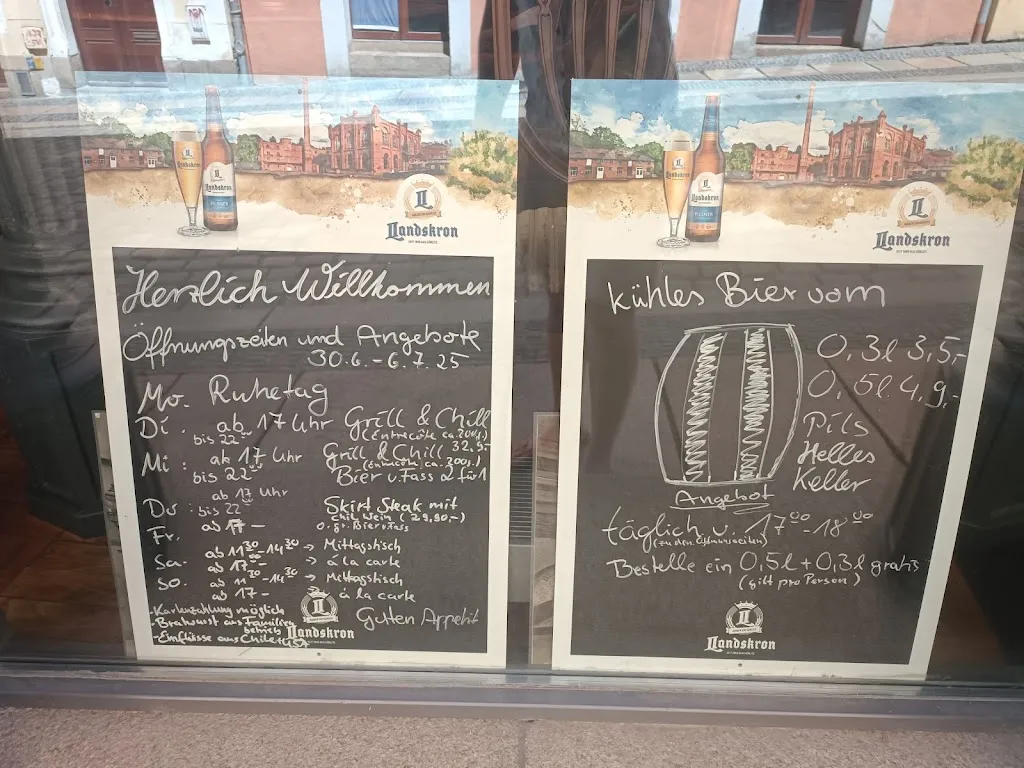 Landskron
PILSNER
L
Landskron
Herzlich Willkommen
Öffnungszeiten und Angebote
30.6. - 6.7.25
Mo. Ruhetag
Di. ab 17 Uhr Grill & Chill
bis 22°° (Entrecôte ca. 200g.)
32,9-
Mi: ab 17 Uhr Grill & Chill
bis 22°° (Entrecôte ca. 200g.)
Bier v. Fass 2 für 1
ab 17 Uhr
Do: bis 22°° Skirt Steak mit
Chil. Wein (29,90,-)
Fr. ab 17 - o. gr. Bier Fass
Sa. ab 11³⁰ - 14³⁰ → Mittagstisch
ab 17°° - → à la carte
So. ab 11³⁰ - 14³⁰ → Mittagstisch
ab 17 - → à la carte
- Kartenzahlung möglich
- Bratwurst aus Familien
betrieb
- Einflüsse aus Chile
L
Landskron
Guten Appetit
Landskron
PILSNER
L
Landskron
kühles Bier vom
0,3l 3,5,-
0,5l 4,9,-
Pils
Helles
Keller
Angebot
täglich v. 17°° - 18°°
(zu den Öffnungszeiten)
Bestelle ein 0,5l + 0,3l gratis
(gilt pro Person)
L
Landskron